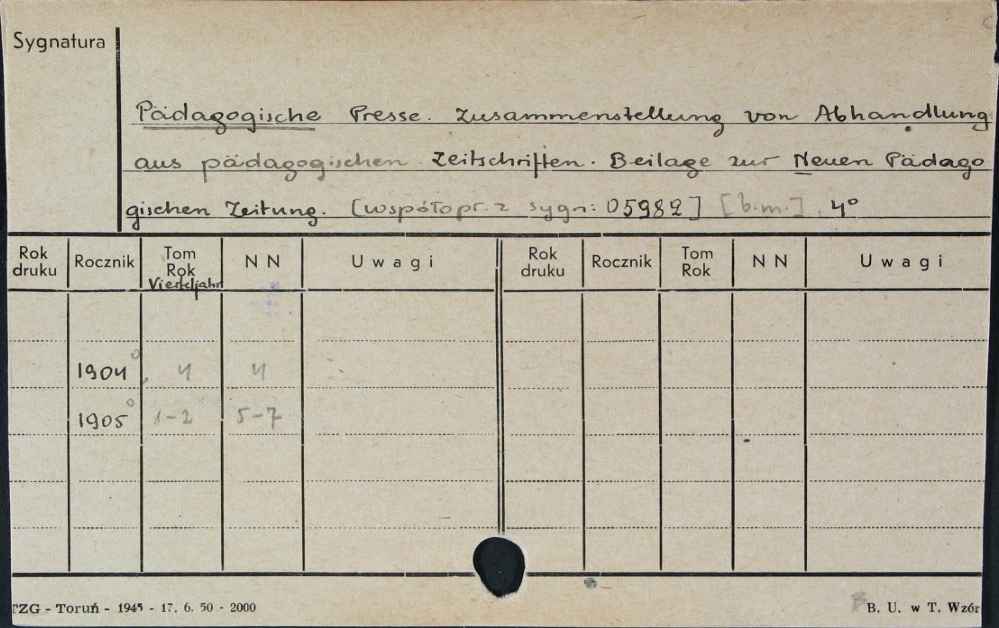 Sygnatura
Pädagogische Presse. Zusammenstellung von Abhandlung
aus pädagogischen Zeitschriften. Beilage zur Neuen Pädago
gischen Zeitung. [współopr. z sygn: 05982] [b.m.]. 4°
Rok druku Rocznik Tom Rok Vierteljahr N N Uwagi Rok druku Rocznik Tom Rok N N Uwagi
1904° 4 4
1905° 1-2 5-7
TZG - Toruń - 1945 - 17. 6. 50 - 2000 B. U. w T. Wzór